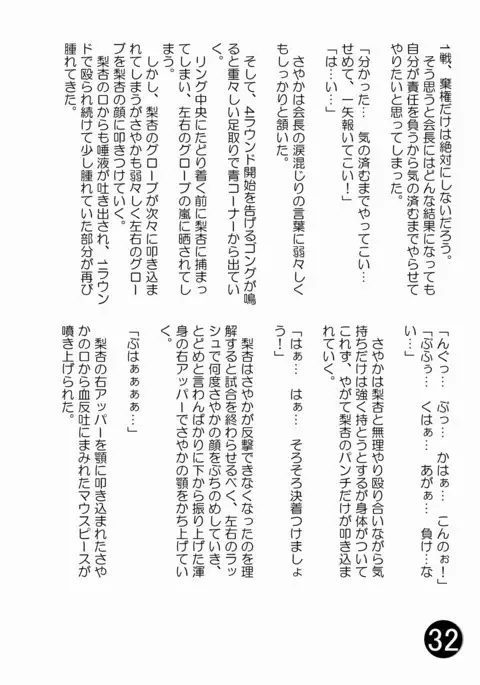 1戦、棄権だけは絶対にしないだろう。
そう思うと会長にはどんな結果になっても
自分が責任を負うから気の済むまでやらせて
やりたいと思ってしまった。
「分かった… 気の済むまでやってこい…
せめて、一矢報いてこい！」
「は…い…」
さやかは会長の涙混じりの言葉に弱々しく
もしっかりと頷いた。
そして、4ラウンド開始を告げるゴングが鳴
ると重々しい足取りで青コーナーから出てい
く。
リング中央にたどり着く前に梨杏に捕まっ
てしまい、左右のグローブの嵐に晒されてし
まう。
しかし、梨杏のグローブが次々に叩き込ま
れてしまうがさやかも弱々しく左右のグロー
ブを梨杏の顔に叩きつけていく。
梨杏の口からも唾液が吐き出され、1ラウン
ドで殴られ続けて少し腫れていた部分が再び
腫れてきた。
「んぐっ… ぶっ… かはぁ… こんのぉ！」
「ぶふぅ… くはぁ… あがぁ… 負け…な
い…」
さやかは梨杏と無理やり殴り合いながら気
持ちだけは強く持とうとするが身体がついて
これず、やがて梨杏のパンチだけが叩き込ま
れていく。
「はぁ… はぁ… そろそろ決着つけましょ
う！」
梨杏はさやかが反撃できなくなったのを理
解すると試合を終わらせるべく、左右のラッ
シュで何度さやかの顔をぶちのめしていき、
とどめと言わんばかりに下から振り上げた渾
身の右アッパーでさやかの顎をかち上げてい
く。
「ぶはぁぁぁぁ…」
梨杏の右アッパーを顎に叩き込まれたさや
かの口から血反吐にまみれたマウスピースが
噴き上げられた。
32